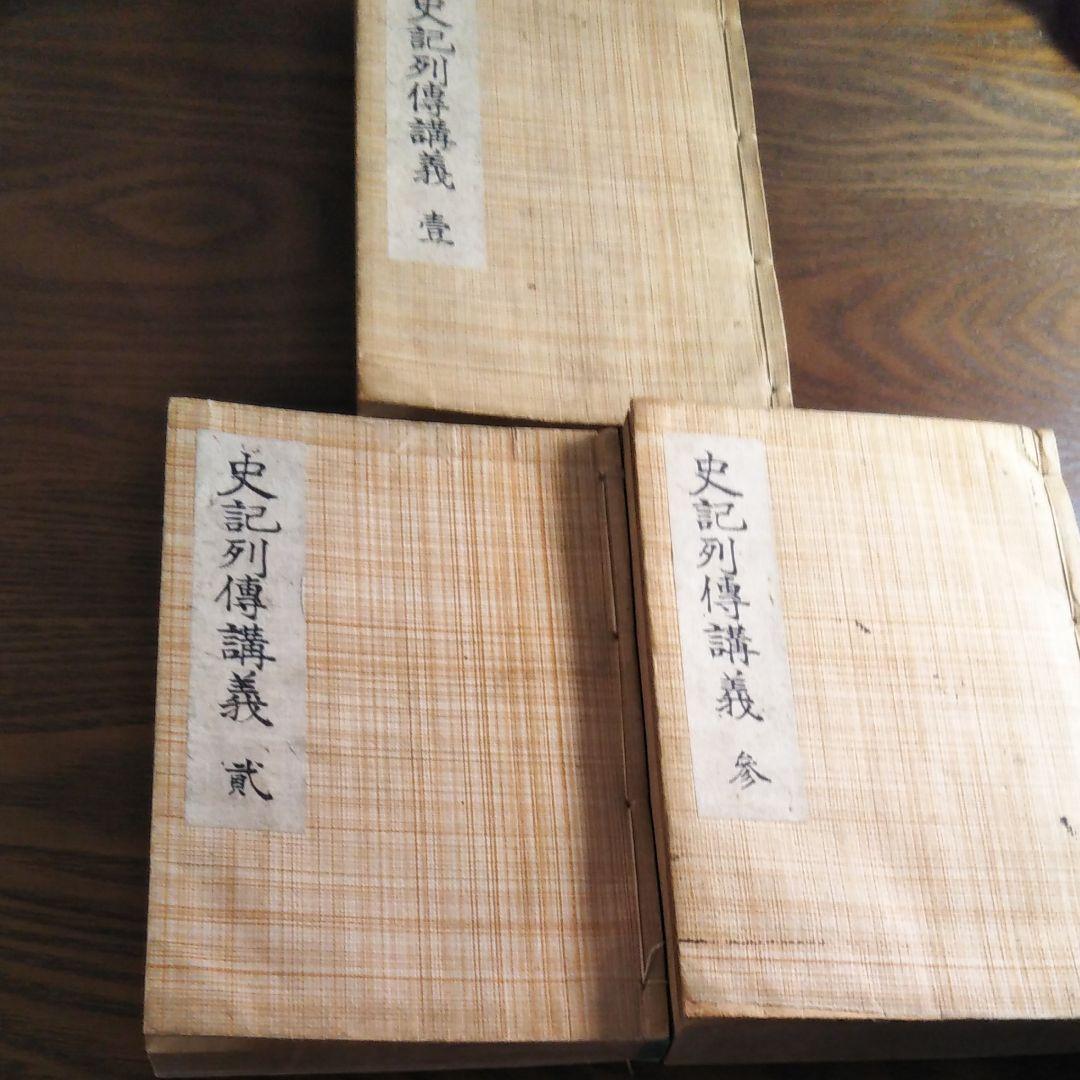 史記列傳講義 壹
史記列傳講義 貳
史記列傳講義 參